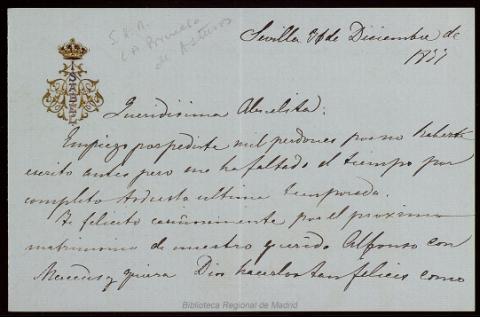 S.A.R.
La Princesa
de Asturias
Sevilla 30 de Diciembre de
1877
ISABEL
Queridisima Abuelita:
Empiezo por pedirte mil perdones por no haberte
escrito antes pero me ha faltado el tiempo por
completo toda esta ultima temporada.
Te felicito cariñosamente por el próximo
matrimonio de nuestro querido Alfonso con
Mercedes y quiera Dios hacerlos tan felices como
Biblioteca Regional de Madrid